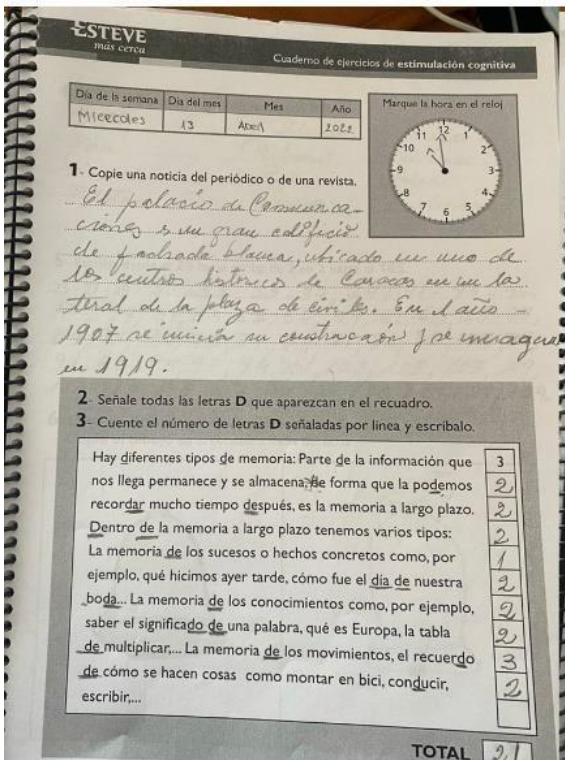 ESTEVE
más cerca
Cuaderno de ejercicios de estimulación cognitiva
Día de la semana Día del mes Mes Año
Miercoles 13 Abril 2022
Marque la hora en el reloj
12
11 1
10 2
9 3
8 4
7 5
6
1- Copie una noticia del periódico o de una revista.
El palacio de Communica-
ciones es un gran edificio
de fachada blanca, ubicado en uno de
los centros historicos de Caracas en un la
teral de la plaza de. En el año
1907 se inicia su construcción y se
en 1919.
2- Señale todas las letras D que aparezcan en el recuadro.
3- Cuente el número de letras D señaladas por línea y escríbalo.
Hay diferentes tipos de memoria: Parte de la información que 3
nos llega permanece y se almacena de forma que la podemos 2
recordar mucho tiempo después, es la memoria a largo plazo. 2
Dentro de la memoria a largo plazo tenemos varios tipos: 2
La memoria de los sucesos o hechos concretos como, por 1
ejemplo, qué hicimos ayer tarde, cómo fue el día de nuestra 2
boda... La memoria de los conocimientos como, por ejemplo, 2
saber el significado de una palabra, qué es Europa, la tabla 2
de multiplicar,... La memoria de los movimientos, el recuerdo 3
de cómo se hacen cosas como montar en bici, conducir, 2
escribir,...
TOTAL 21